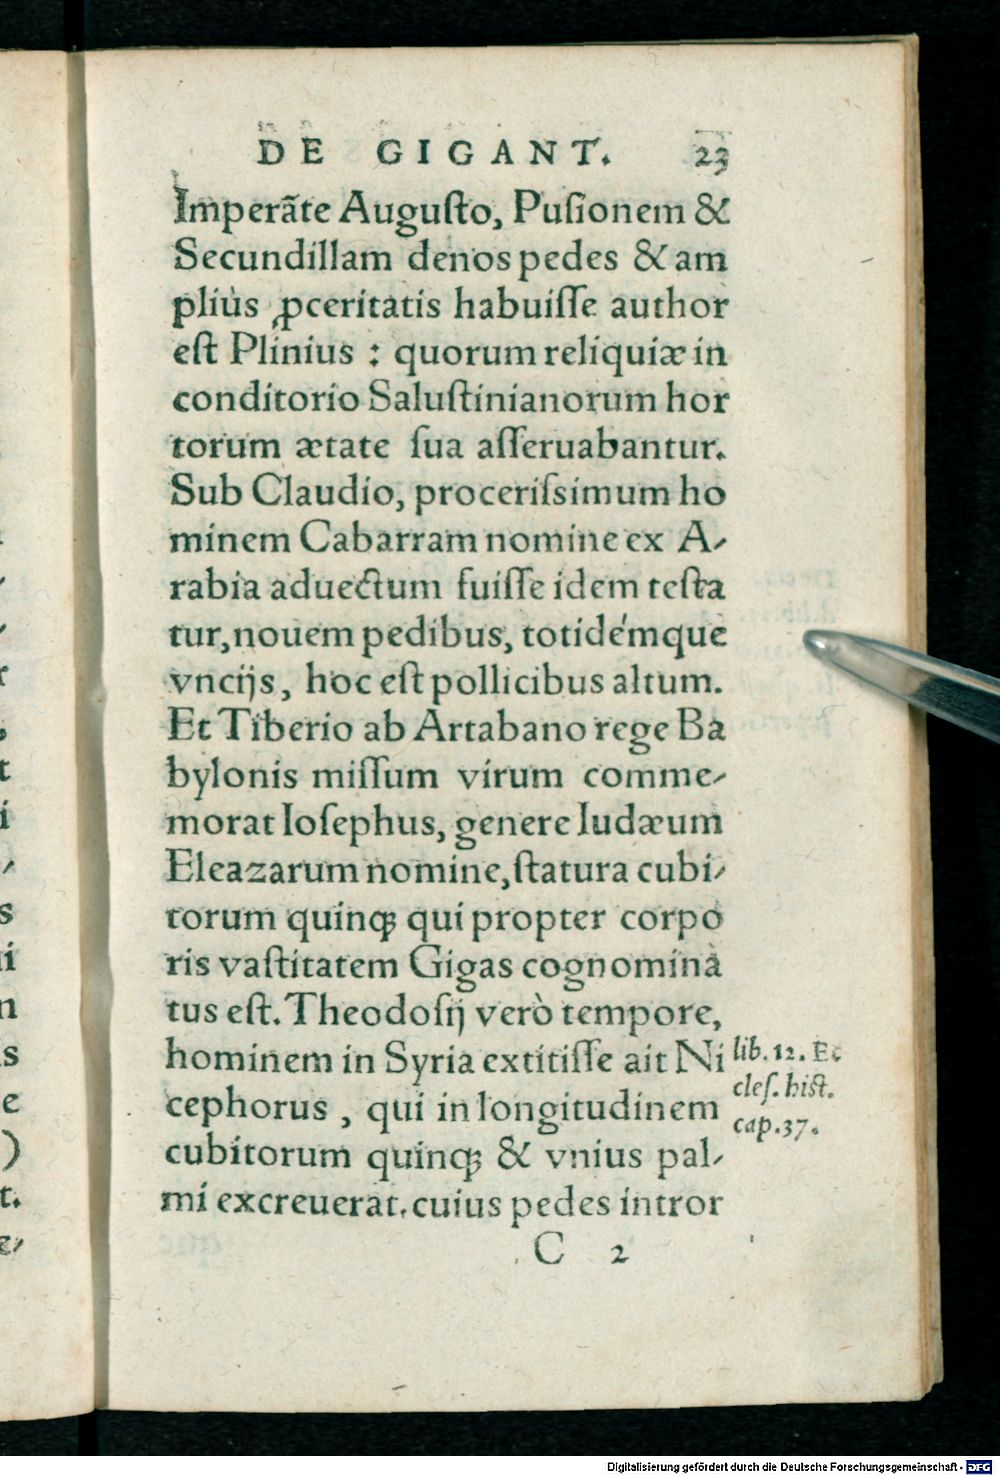 DE GIGANT. 23
Imperãte Augusto, Pusionem &
Secundillam denos pedes & am
pliùs ꝓceritatis habuisse author
est Plinius : quorum reliquiæ in
conditorio Salustinianorum hor
torum ætate sua asseruabantur.
Sub Claudio, procerissimum ho
minem Cabarram nomine ex A-
rabia aduectum fuisse idem testa
tur, nouem pedibus, totidémque
vncijs, hoc est pollicibus altum.
Et Tiberio ab Artabano rege Ba
bylonis missum virum comme-
morat Iosephus, genere Iudæum
Eleazarum nomine, statura cubi-
torum quinqꝫ qui propter corpo
ris vastitatem Gigas cognomina
tus est. Theodosij verò tempore,
hominem in Syria extitisse ait Ni
cephorus, qui in longitudinem
cubitorum quinqꝫ & vnius pal-
mi excreuerat. cuius pedes intror
C 2
lib. 12. Ec
cles. hist.
cap. 37.
Digitalisierung gefördert durch die Deutsche Forschungsgemeinschaft - DFG